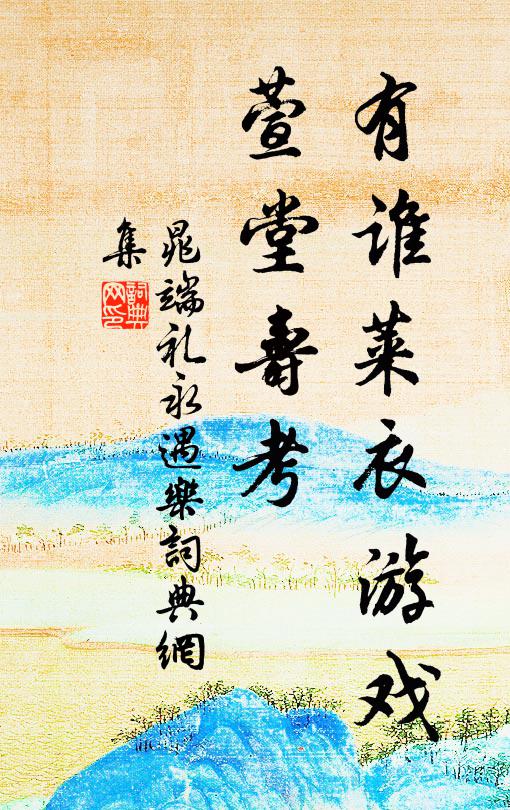 有谁莱衣游戏
萱堂壽考
晁端礼永遇樂詞典網
集
詞典
网印